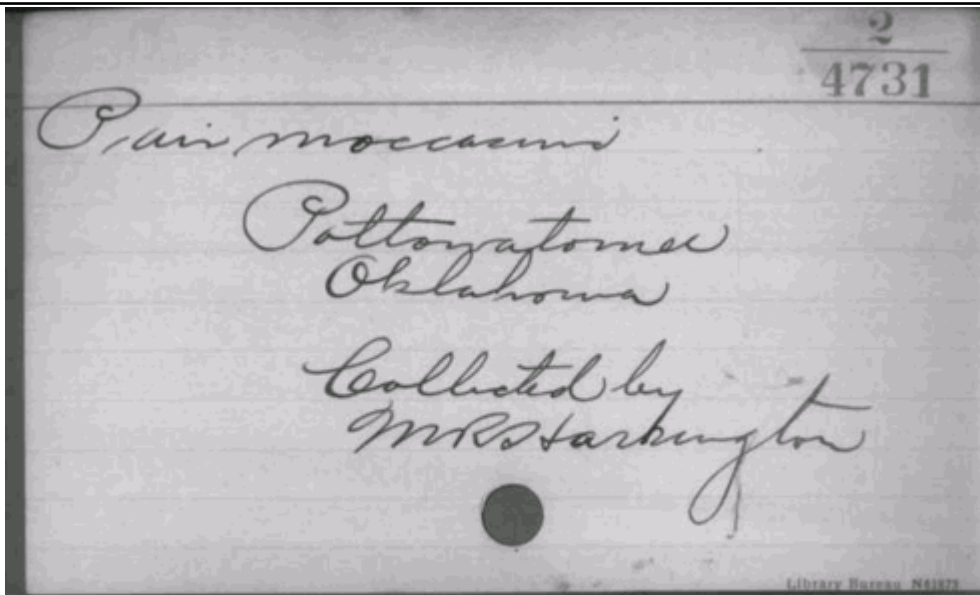 2
4731
Pair moccasins
Pottowatomee
Oklahoma
Collected by
MR Harrington
Library Bureau